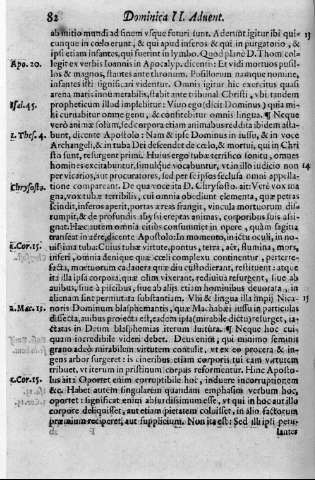 82 Dominica II. Aduent.
ab initio mundi ad finem vsque futuri sunt. Aderunt igitur ibi qui- 13
cunque in cœlo erunt, & qui apud inferos & qui in purgatorio, &
ipsi etiam infantes, qui fuerint in lymbo. Quod planè D. Thom. col-
Apo. 20. legit ex verbis Ioannis in Apocalyp. dicentis: Et vidi mortuos pusil-
los & magnos, stantes ante thronum. Pusillorum namque nomine,
infantes ibi significari videntur. Omnis igitur hic exercitus quasi
arena maris innumerabilis, stabit ante tribunal Christi, vbi tandem
Isai. 45. propheticum illud implebitur: Viuo ego (dicit Dominus) quia mi-
hi curuabitur omne genu, & confitebitur omnis lingua. ¶ Neque
verò animæ solùm, sed corpora etiam animabus reddita ibidem asta-
1. Thes. 4. bunt, dicente Apostolo: Nam & ipse Dominus in iussu, & in voce
Archangeli, & in tuba Dei descendet de cœlo, & mortui, qui in Chri
sto sunt, resurgent primi. Huius ergo tubæ terrifico sonitu, omnes
homines excitabuntur, simulque vocabuntur, vt in illo iudicio non 14
per vicarios, aut procuratores, sed per se ipsos
Chrysosto. tione compareant. De qua voce ita D. Chrysosto. ait: Verè vox ma
gna, vox tubæ terribilis, cui omnia obediunt elementa, quæ petras
scindit, inferos aperit, portas æreas frangit, vincula mortuorum dis-
rumpit, & de profundis abyssi ereptas animas, corporibus suis assi-
gnat. Hæc autem omnia citiùs consummat in opere, quàm sagitta
transeat in aëre, dicente Apostolo: In momento, in ictu oculi, in no-
1. Cor. 15. uissima tuba: Cuius tubæ virtute, pontus, terra, aër, flumina, mors,
inferi, omnia denique quæ cœli complexu continentur, perterre-
facta, mortuorum cadauera quæ diu custodierant, restituent: atque
ita illi ipsa corpora, quæ olim vixerant, rediuiua resurgent, siue ab
auibus, siue à piscibus, siue ab aliis etiam hominibus deuorata, in
alienam sint permutata substantiam. Vbi & lingua illa impij Nica-
2. Mac. 15. noris Dominum blasphemantis, quæ Machabæi iussu in particulas
dissecta, auibus proiecta est, eadem ipsa (mirabile dictu) resurget, ia-
ctatas in Deum blasphemias iterum luitura. ¶ Neque hoc cui-
quam incredibile videri debet. Deus enim, qui minimo seminis
grano adeò mirabilem virtutem contulit, vt ex eo procera & in-
gens arbor surgeret: is cineribus etiam corporis tui eam virtutem
tribuet, vt iterum in pristinum corpus reformentur. Hinc Aposto-
1. Cor. 15. lus ait: Oportet enim corruptibile hoc, induere incorruptionem
&c. Habet autem singularem quandam emphasim verbum hoc,
oportet: significat enim absurdissimum esse, vt qui in hoc aut illo
corpore deliquisset, aut etiam pietatem coluisset, in alio factorum
præmium reciperet, aut supplicium. Non ita est: Sed illi ipsi petu-
lantes